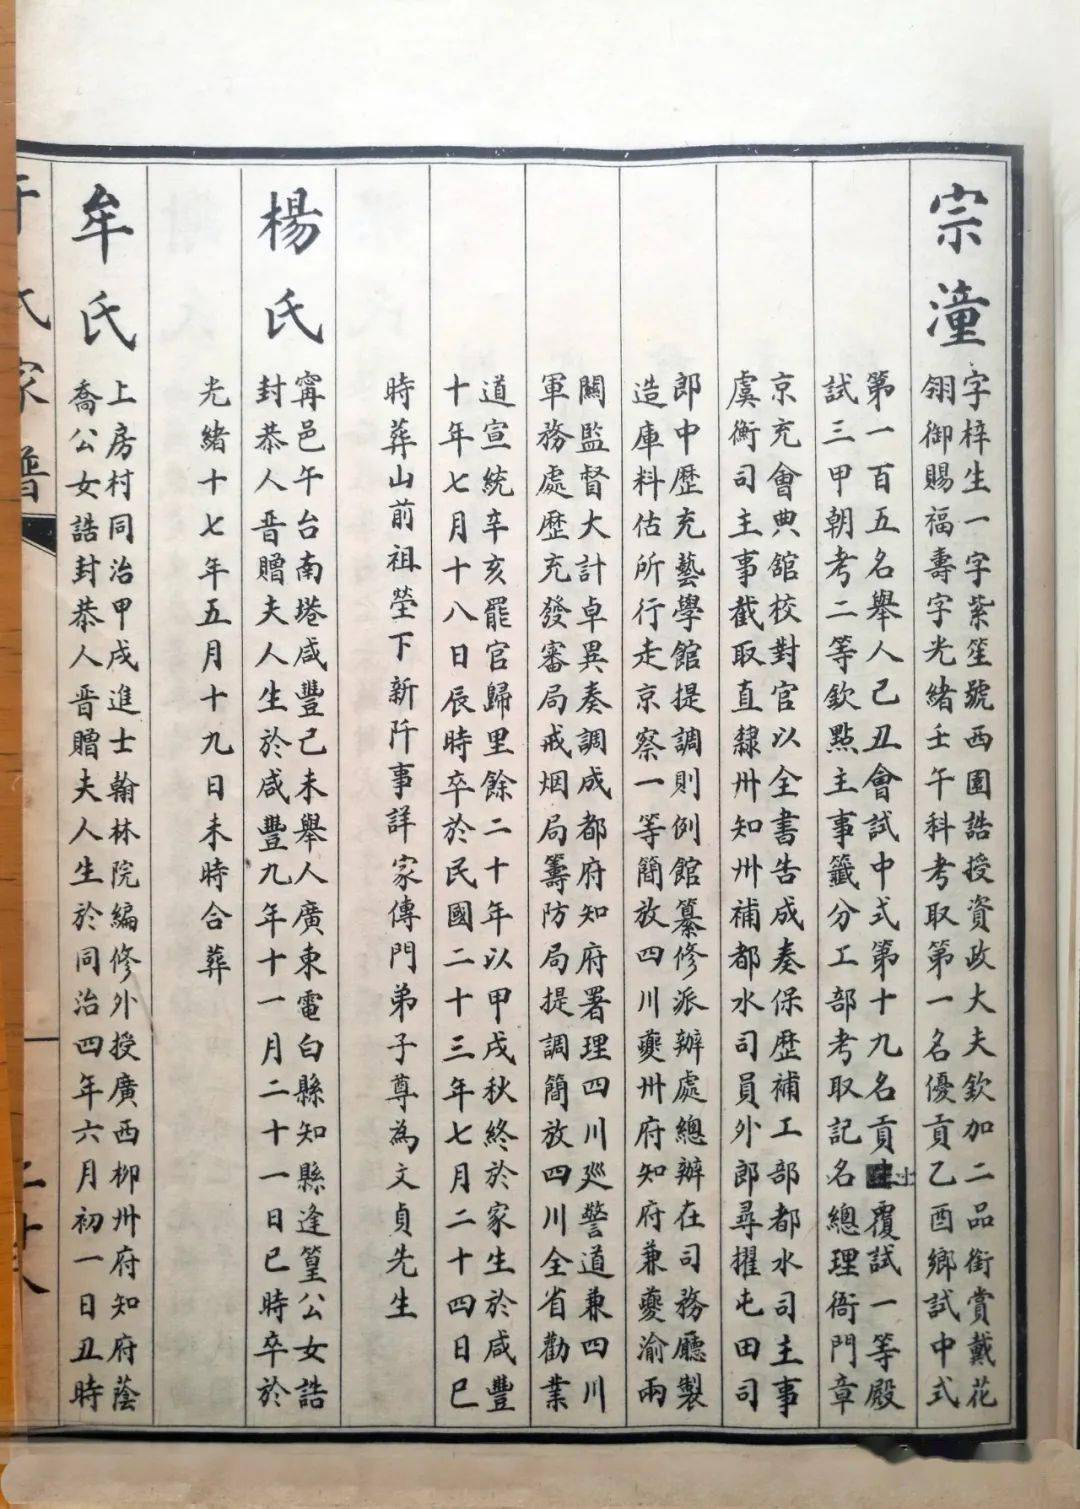 宗潼
字梓生一字紫笙號西園誥授資政大夫欽加二品銜賞戴花
翎御賜福壽字光緒壬午科考取第一名優貢乙酉鄉試中式
第一百五名舉人己丑會試中式第十九名貢士覆試一等殿
試三甲朝考二等欽點主事籤分工部考取記名總理衙門章
京充會典館校對官以全書告成奏保歷補工部都水司主事
虞衡司主事截取直隸州知州補都水司員外郎尋擢屯田司
郎中歷充藝學館提調則例館纂修派辦處總辦在司務廳製
造庫料估所行走京察一等簡放四川夔州府知府兼夔渝兩
關監督大計卓異奏調成都府知府署理四川廵警道兼四川
軍務處歷充發審局戒烟局籌防局提調簡放四川全省勸業
道宣統辛亥罷官歸里餘二十年以甲戌秋終於家生於咸豐
十年七月十八日辰時卒於民國二十三年七月二十四日巳
時葬山前祖塋下新阡事詳家傳門弟子尊為文貞先生
楊氏
甯邑午台南塔咸豐己未舉人廣東電白縣知縣逢篁公女誥
封恭人晋贈夫人生於咸豐九年十一月二十一日巳時卒於
光緒十七年五月十九日未時合葬
牟氏
上房村同治甲戌進士翰林院編修外授廣西柳州府知府蔭
喬公女誥封恭人晋贈夫人生於同治四年六月初一日丑時
氏家譜